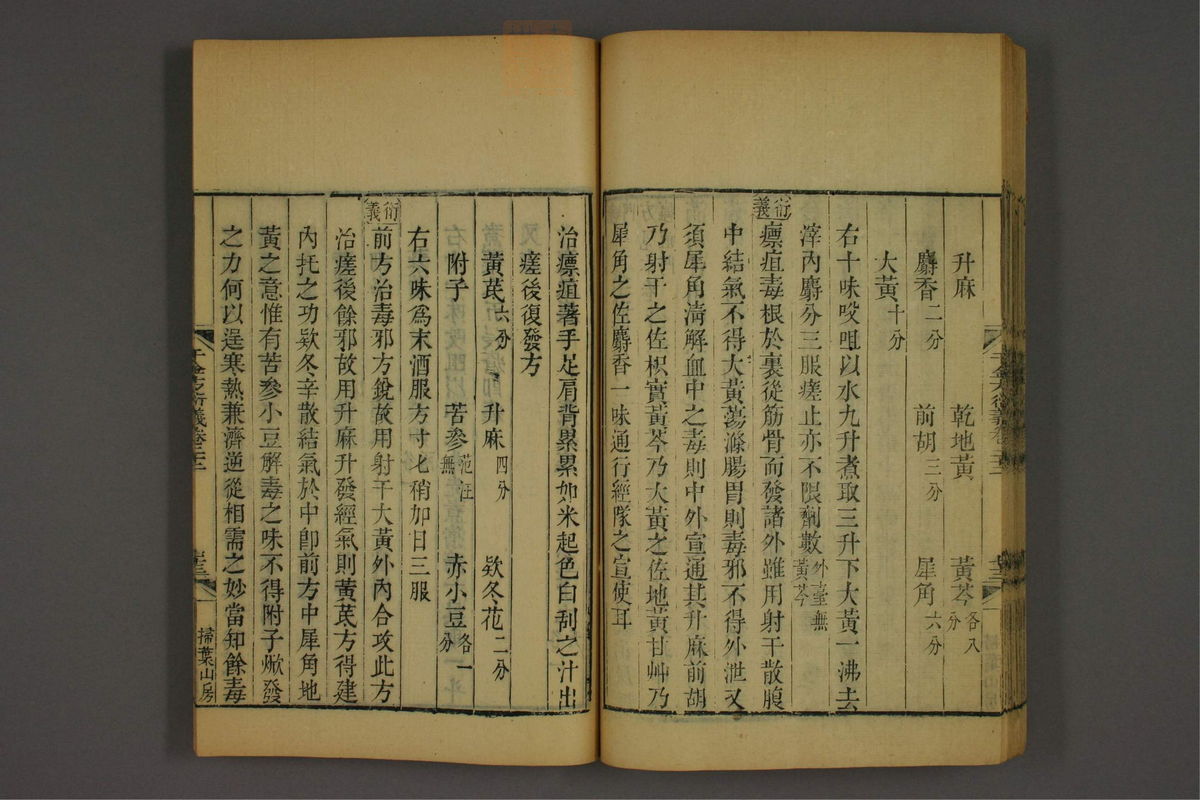 升麻 乾地黃 黃芩各八分
麝香二分 前胡三分 犀角六分
大黃十分
右十味㕮咀以水九升煮取三升下大黃一沸去
滓內麝分三服瘥止亦不限劑數外臺無黃芩
衍義
瘭疽毒根於裏從筋骨而發諸外雖用射干散腹
中結氣不得大黃蕩滌腸胃則毒邪不得外泄又
須犀角清解血中之毒則中外宣通其升麻前胡
乃射干之佐枳實黃芩乃大黃之佐地黃甘艸乃
犀角之佐麝香一味通行經隊之宣使耳
治瘭疽著手足肩背累累如米起色白刮之汁出
瘥後復發方
黃芪六分 升麻四分 欵冬花二分
附子 苦參范汪無 赤小豆各一分
右六味為末酒服方寸七稍加日三服
衍義
前方治毒邪方銳故用射干大黃外內合攻此方
治瘥後餘邪故用升麻升發經氣則黃芪方得建
內托之功欵冬辛散結氣於中卽前方中犀角地
黃之意惟有苦參小豆解毒之味不得附子焮發
之力何以逞寒熱兼濟逆從相需之妙當知餘毒
千金方衍義卷二十二
掃葉山房